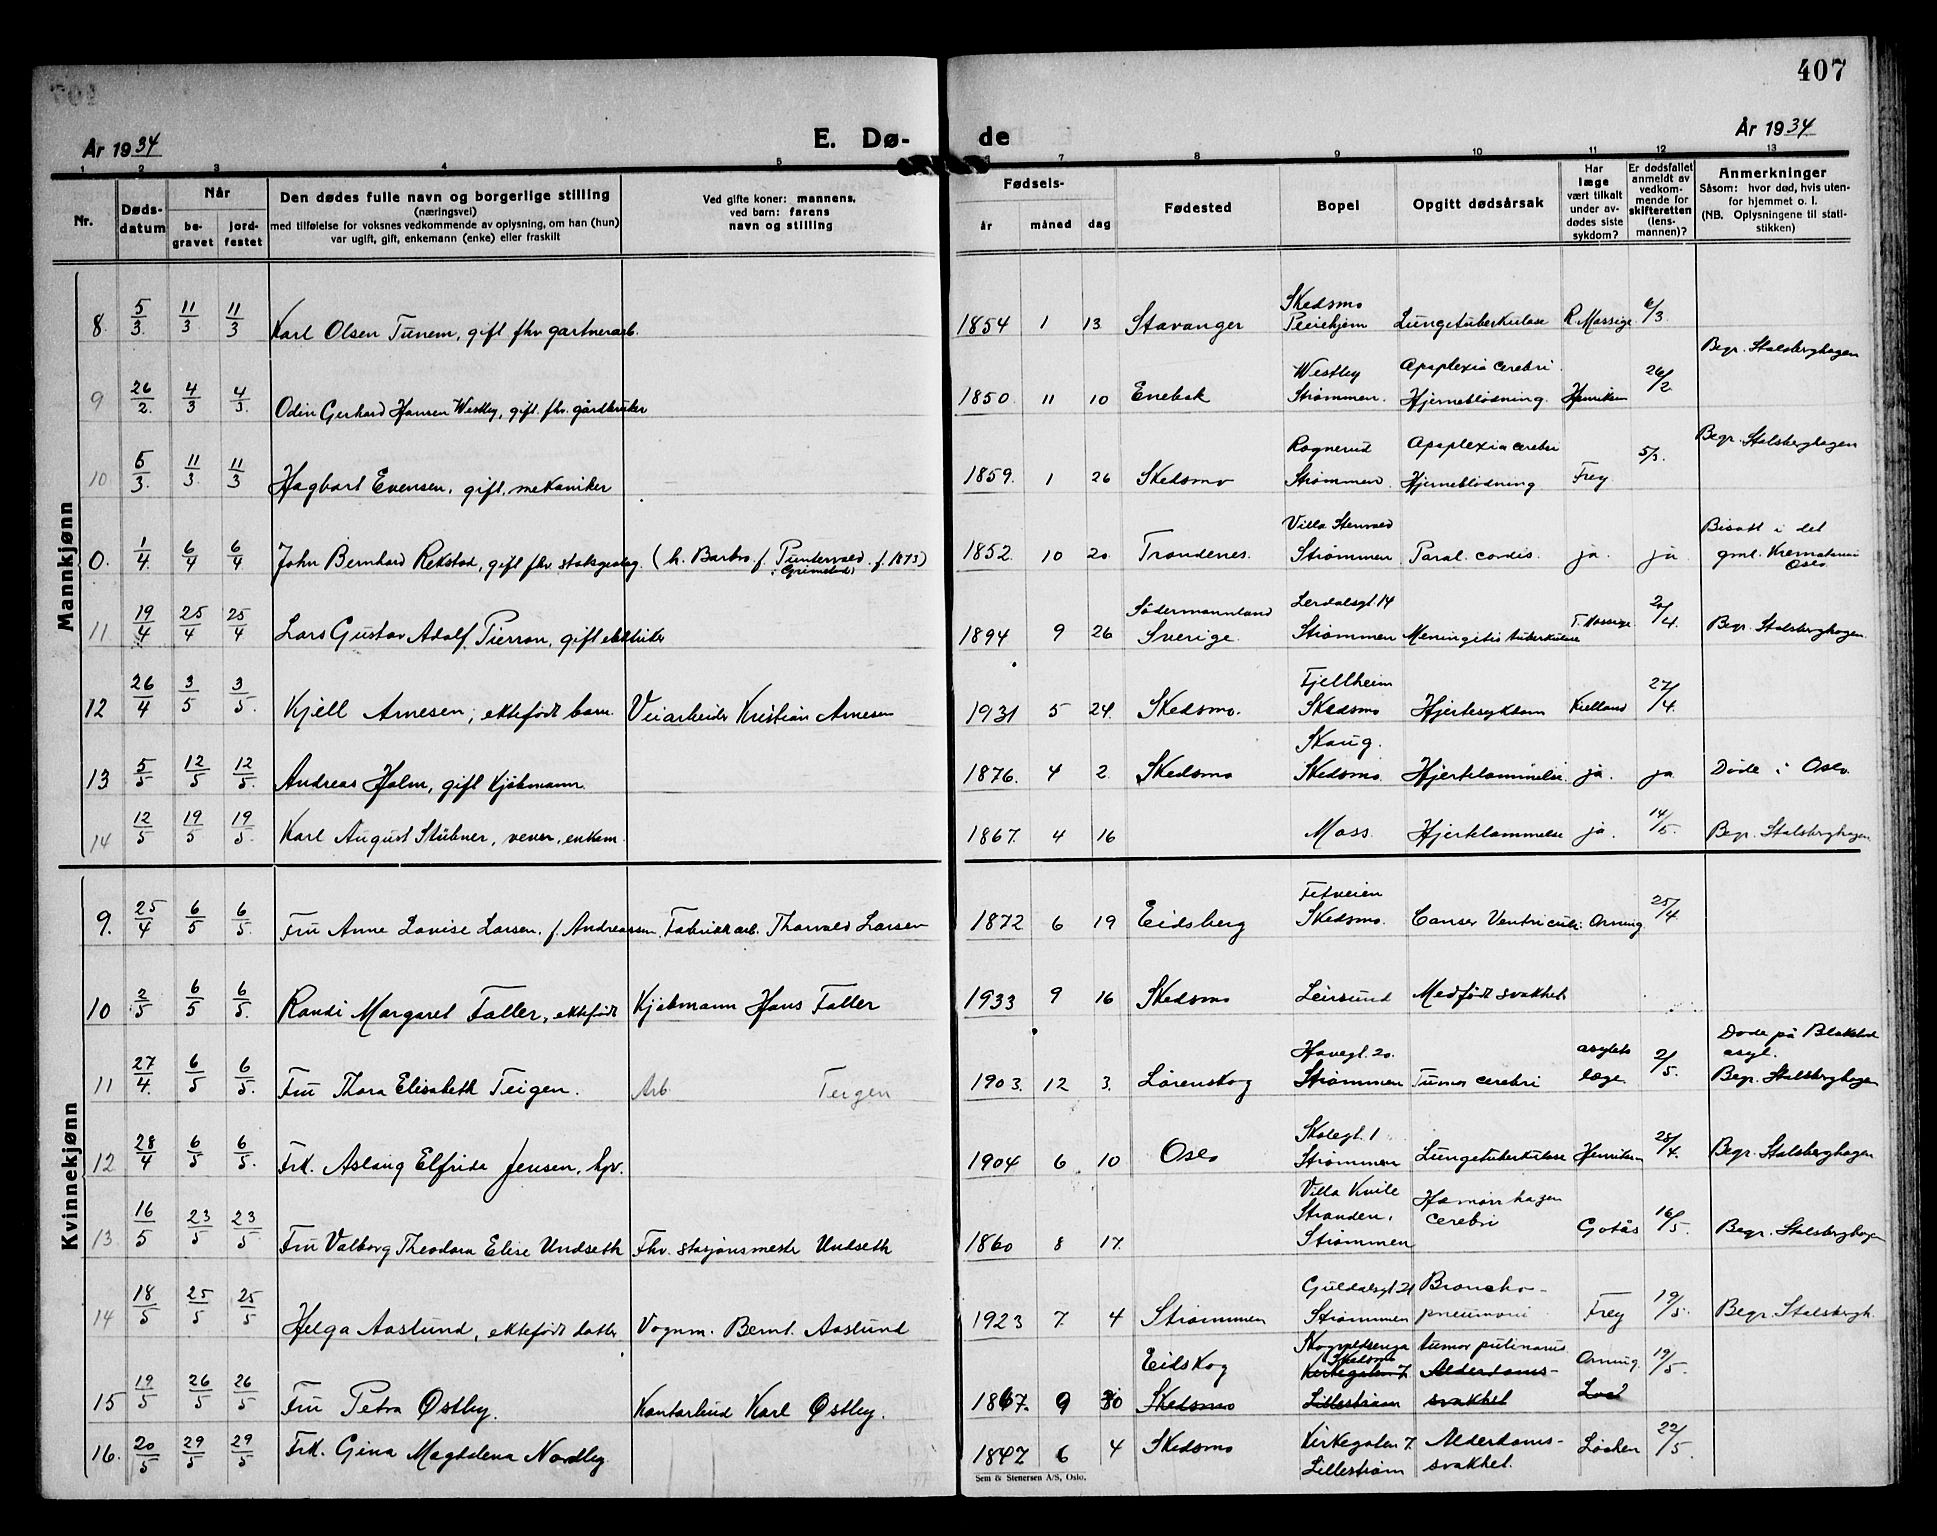 407
År 1934
E. Dø-
de
År 1934
1 2 3 4 5 6 7 8 9 10 11 12 13
Nr.
Døds-
datum
Når
be-
gravet
jord-
festet
Den dødes fulle navn og borgerlige stilling
(næringsvei)
med tilføielse for voksnes vedkommende av oplysning, om han (hun)
var ugift, gift, enkemann (enke) eller fraskilt
Ved gifte koner: mannens,
ved barn: farens
navn og stilling
Fødsels-
år måned dag
Fødested
Bopel
Opgitt dødsårsak
Har
læge
vært tilkalt
under av-
dødes siste
sykdom?
Er dødsfallet
anmeldt av
vedkom-
mende for
skifteretten
(lens-
mannen)?
Anmerkninger
Såsom: hvor død, hvis uten-
for hjemmet o. l.
(NB. Oplysningene til stati-
stikken)
Mankjønn
8. 5/3. 11/3 11/3 Karl Olsen Tunem, gift fhv gartnerarb. 1854 1 13 Stavanger Skedsmo Pleiehjem Lungetuberkulose R. Massige 6/3
Begr. Stalsberghagen
9 26/2. 4/3 4/3. Odin Gerhard Hansen Westby, gift. fhv. gårdbruker 1850. 11 10 Enebak Westby Strømmen. Apoplexia cerebri. Hjerneblødning. Henriksen 26/2
Begr. Stalsberghagen
10 5/3. 11/3. 11/3 Hagbart Evensen, gift, mekaniker 1859. 1 26 Skedsmo Rognerud Strømmen. Apoplexia cerebri Hjerneblødning Frey 5/3.
0. 1/4. 6/4 6/4 John Bernhard Rekstad, gift fhv (h. Barbro f. Puntervold. f. 1873) Grimstad 1852. 10 20 Trondenes. Villa Stenvold Strømmen Paral. cordis. ja. ja Bisatt i det gml. Krematorie Oslo
11 19/4 25/4 25/4 Lars Gustav Adolf Pierron, gift 1894 9 26 Södermannland Sverige. Lerdalsgt 14 Strømmen Meningitis tuberkulose T. Massige 20/4. Begr. Stalsberghagen.
12 26/4 3/5 3/5. Kjell Arnesen, ektefødt barn. Veiarbeider Kristian Arnesen 1931 5 24. Skedsmo. Fjellheim Skedsmo Hjertesykdom Kielland 27/4.
13 5/5 12/5 12/5. Andreas Holm, gift Kjøbmann. 1876. 4 2. Skedsmo Skaug. Skedsmo. Hjertelammelse. ja. ja Døde i Oslo.
14 12/5 19/5 19/5. Karl August Stübner, vever, enkem. 1867. 4 16 Moss. Hjertelammelse ja. 14/5. Begr. Stalsberghagen
Kvinnekjønn
9. 25/4 6/5 6/5. Fru Anne Lovise Larsen. f. Andreassen. Fabrikkarb. Thorvald Larsen 1872 6 19 Eidsberg Fetveien Skedsmo. Canser Ventriculi. Orning 25/4
10 2/5 6/5 6/5. Randi Margaret Faller, ektefødt Kjøbmann Hans Faller 1933 9 16 Skedsmo Leirsund Medfødt svakhet
11 27/4 6/5 6/5. Fru Thora Elisabeth Teigen. Arb Teigen 1903. 12 3. Lørenskog Havegt. 20. Strømmen Tumor cerebri asylets læge 2/5. Døde på Blakstad asyl. Begr. Stalsberghagen
12 28/4 6/5 6/5. Frk. Aslaug Elfride Jensen, hjv. 1904 6 10 Oslo Skolegt. 1 Strømmen Lungetuberkulose Henriksen 28/4. Begr. Stalsberghagen
13 16/5 23/5 23/5. Fru Valborg Theodora Elise Undseth Fhv. stasjonsmester Undseth 1860 8 17. Villa Kvile Stranden, Strømmen Hæmorrhagen cerebri Gotås 16/5. Begr. Stalsberghagen
14 18/5 25/5 25/5 Helga Aaslund, ektefødt datter Vognm. Bernt. Aaslund 1923 7 4 Strømmen Guldalsgt 21 Strømmen Broncho-pneumoni Frey 19/5. Begr. Stalsbergh.
15 19/5 26/5 26/5 Fru Petra Østby. Kontorbud Karl Østby. 1867. 9 30 Eidskog Skedsmo Skedsmo Kirkegaten 7. Lillestrøm tumor Alderdoms-svakhet Orning. 19/5.
16. 20/5 29/5 29/5 Frk. Gina Magdalena Nordby 1847 6 4 Skedsmo Kirkegaten 7. Lillestrøm Alderdoms-svakhet. Løchen 22/5.
Sem & Stenersen A/S, Oslo.